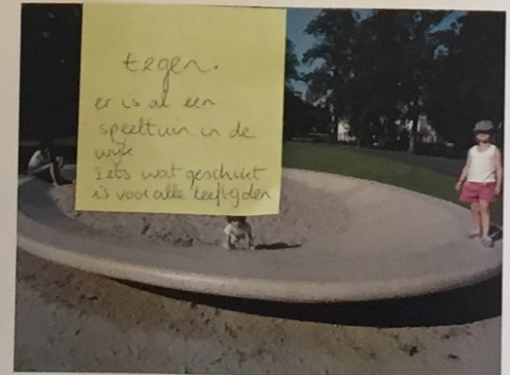 tegen.
er is al een
speeltuin in de
wijk
Iets wat geschikt
is voor alle leeftijden